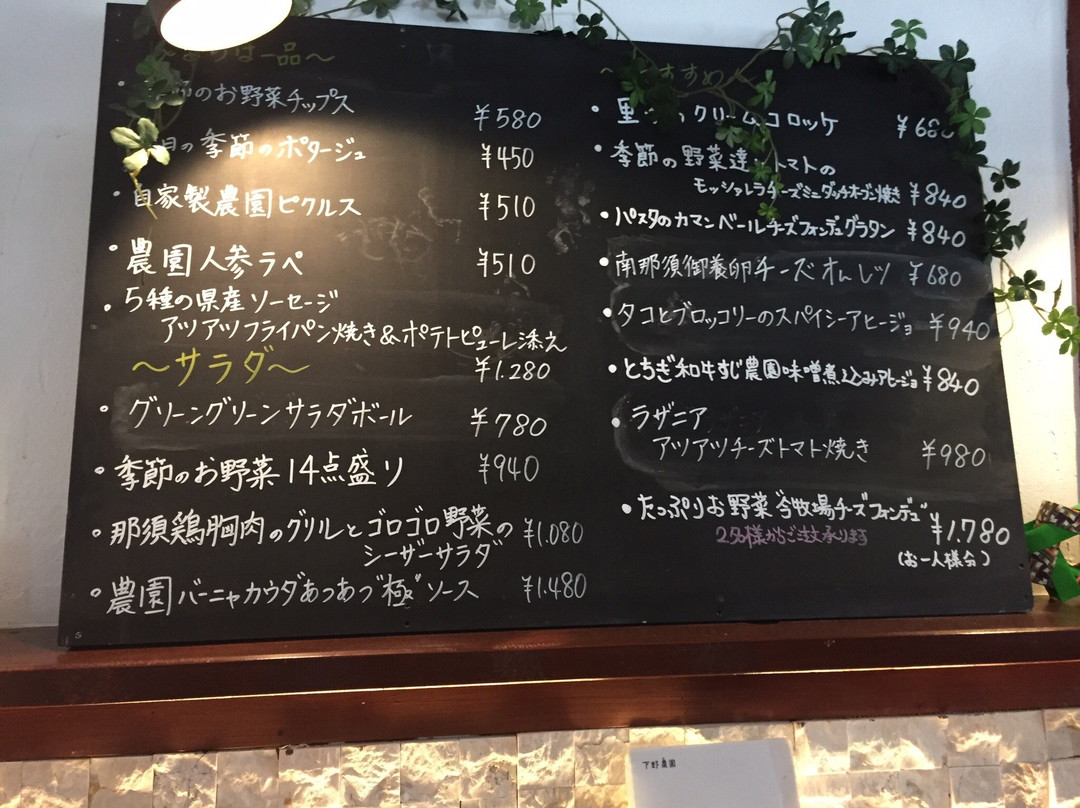 一品～
のお野菜チップス ¥580
の季節のポタージュ ¥450
自家製農園ピクルス ¥510
農園人参ラペ ¥510
5種の県産ソーセージ
アツアツフライパン焼き&ポテトピューレ添え
¥1.280
～サラダ～
グリーングリーンサラダボール ¥780
季節のお野菜14点盛り ¥940
那須鶏胸肉のグリルとゴロゴロ野菜の ¥1.080
シーザーサラダ
農園バーニャカウダあつあつ"極"ソース ¥1.480
すめ
クリームコロッケ ¥680
季節の野菜達とトマトの
モッツァレラチーズミニダッチオーブン焼き ¥840
パスタのカマンベールチーズフォンデュグラタン ¥840
南那須御養卵チーズオムレツ ¥680
タコとブロッコリーのスパイシーアヒージョ ¥940
とちぎ和牛すじ農園味噌煮込みアヒージョ ¥840
ラザニア
アツアツチーズトマト焼き ¥980
たっぷりお野菜"今牧場チーズフォンデュ" ¥1.780
2名様からご注文承ります
(お一人様分)
下野農園